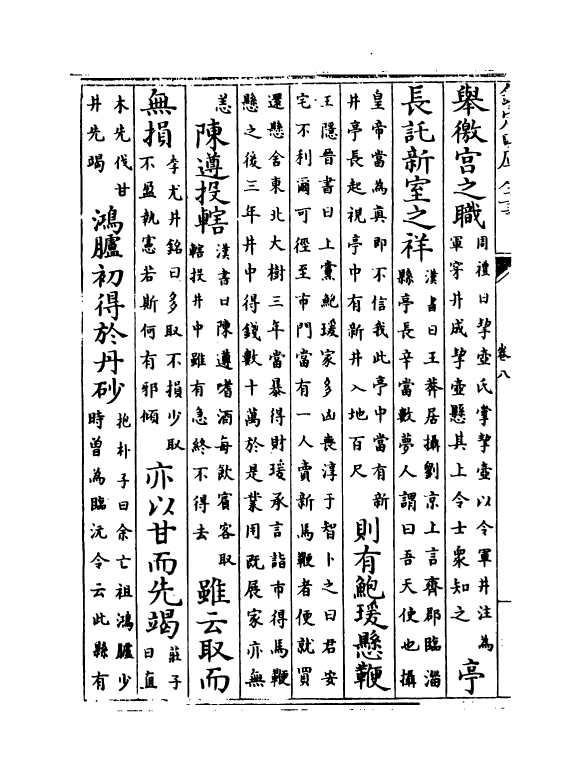 卷八
舉徹宮之職
周禮曰挈壺氏掌挈壺以令軍井注為
軍穿井成挈壺懸其上令士衆知之
亭
長託新室之祥
漢書曰王莽居攝劉京上言齊郡臨淄
縣亭長辛當數夢人謂曰吾天使也攝
皇帝當為真即不信我此亭中當有新
井亭長起視亭中有新井入地百尺
則有鮑瑗懸鞭
王隱晉書曰上黨鮑瑗家多凶喪淳于智卜之曰君安
宅不利爾可徑至市門當有一人賣新馬鞭者便就買
還懸舍東北大樹三年當暴得財瑗承言詣市得馬鞭
懸之後三年井中得錢數十萬於是業用既展家亦無
恙
陳遵投轄
漢書曰陳遵嗜酒每飲賓客取
轄投井中雖有急終不得去
雖云取而
無損
李尤井銘曰多取不損少取
不盈執憲若斯何有邪傾
亦以甘而先竭
莊子
曰直
木先伐甘
井先竭
鴻臚初得於丹砂
抱朴子曰余亡祖鴻臚少
時曾為臨沅令云此縣有